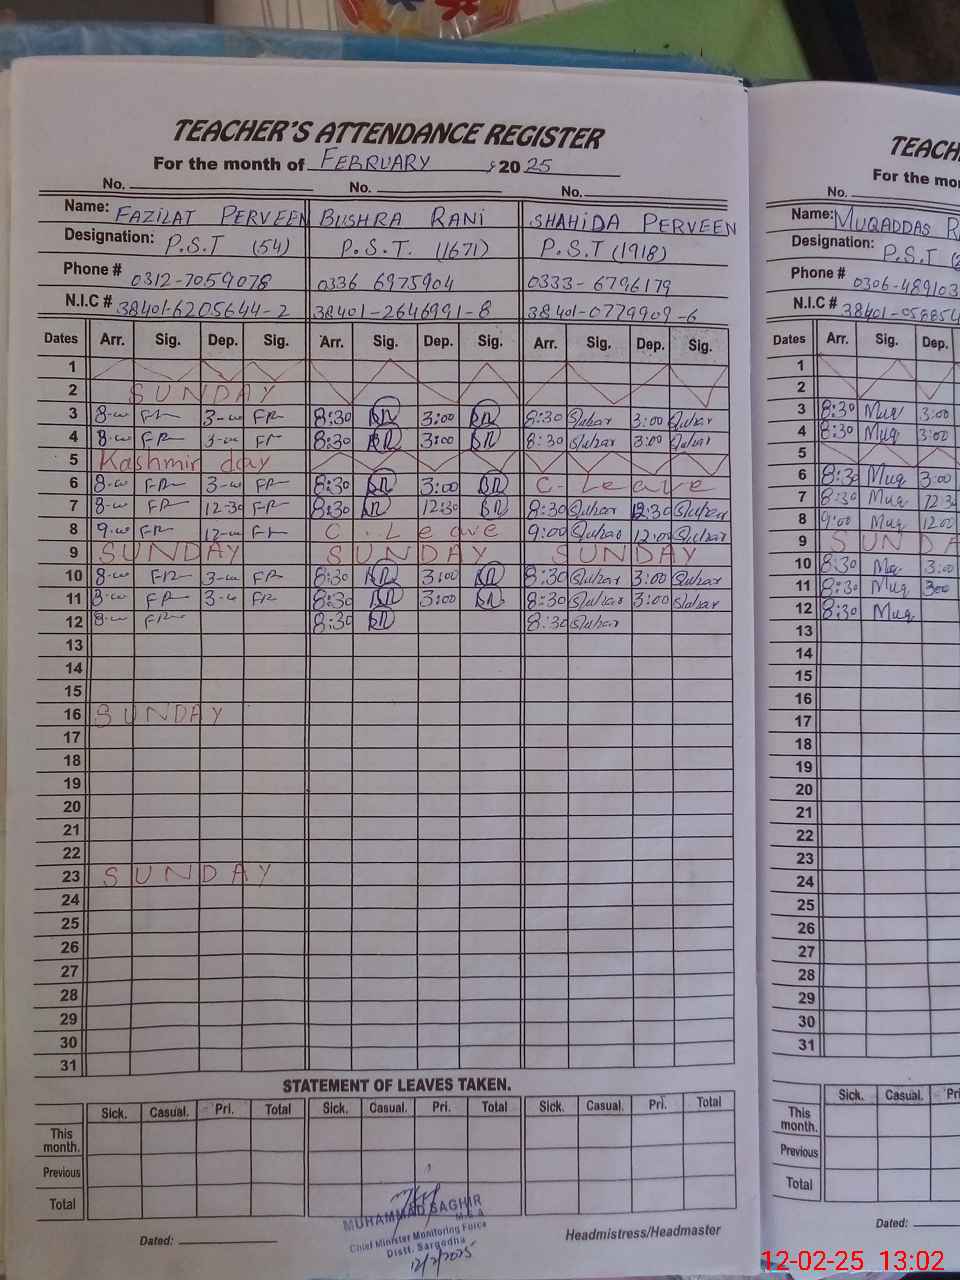 TEACHER'S ATTENDANCE REGISTER
For the month of FEBRUARY, 2025
No. No. No.
Name: FAZILAT PERVEEN BUSHRA RANI SHAHIDA PERVEEN
Designation: P.S.T (54) P.S.T. (1671) P.S.T (1918)
Phone # 0312-7059078 0336 6975904 0333-6796179
N.I.C # 38401-6205644-2 38401-2646991-8 38401-0779909-6
Dates Arr. Sig. Dep. Sig. Arr. Sig. Dep. Sig. Arr. Sig. Dep. Sig.
1
2 SUNDAY
3 8-00 FR 3-00 FR 8:30 BR 3:00 BR 8:30 3:00
4 8-00 FR 3-00 FR 8:30 BR 3:00 BR 8:30 3:00
5 Kashmir day
6 8-00 FR 3-00 FR 8:30 BR 3:00 BR C-Leave
7 8-00 FR 12-30 FR 8:30 BR 12:30 BR 8:30 12:30
8 9-00 FR 12-00 FR C.Leave 9:00 12:00
9 SUNDAY SUNDAY SUNDAY
10 8-00 FR 3-00 FR 8:30 BR 3:00 BR 8:30 3:00
11 8-00 FR 3-00 FR 8:30 BR 3:00 BR 8:30 3:00
12 8-00 FR 8:30 BR 8:30
13
14
15
16 SUNDAY
17
18
19
20
21
22
23 SUNDAY
24
25
26
27
28
29
30
31
STATEMENT OF LEAVES TAKEN.
Sick. Casual. Pri. Total Sick. Casual. Pri. Total Sick. Casual. Pri. Total
This month.
Previous
Total
MUHAMMAD SAGHIR
M.E.A
Chief Minister Monitoring Force
Distt. Sargodha
12/2/2025
Dated: Headmistress/Headmaster
TEACH
For the mo
No.
Name: MUQADDAS R
Designation: P.S.T (2
Phone # 0306-489103
N.I.C # 38401-058854
Dates Arr. Sig. Dep.
1
2
3 8:30 Muq 3:00
4 8:30 Muq 3:00
5
6 8:30 Muq 3:00
7 8:30 Muq 12:3
8 9:00 Muq 12:00
9 SUNDA
10 8:30 Muq 3:00
11 8:30 Muq 3:00
12 8:30 Muq
13
14
15
16
17
18
19
20
21
22
23
24
25
26
27
28
29
30
31
Sick. Casual. Pri
This month.
Previous
Total
Dated:
12-02-25 13:02